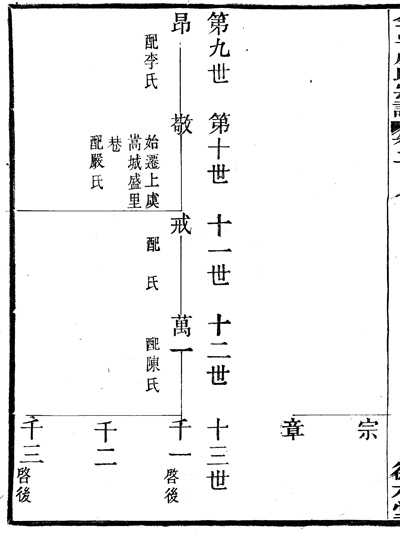 宗
章
第九世
第十世
十一世
十二世
十三世
昂
配李氏
敬
始遷上虞
嵩城盛里
巷
配嚴氏
戒
配 氏
萬一
配陳氏
千一
啓後
千二
千三
啓後